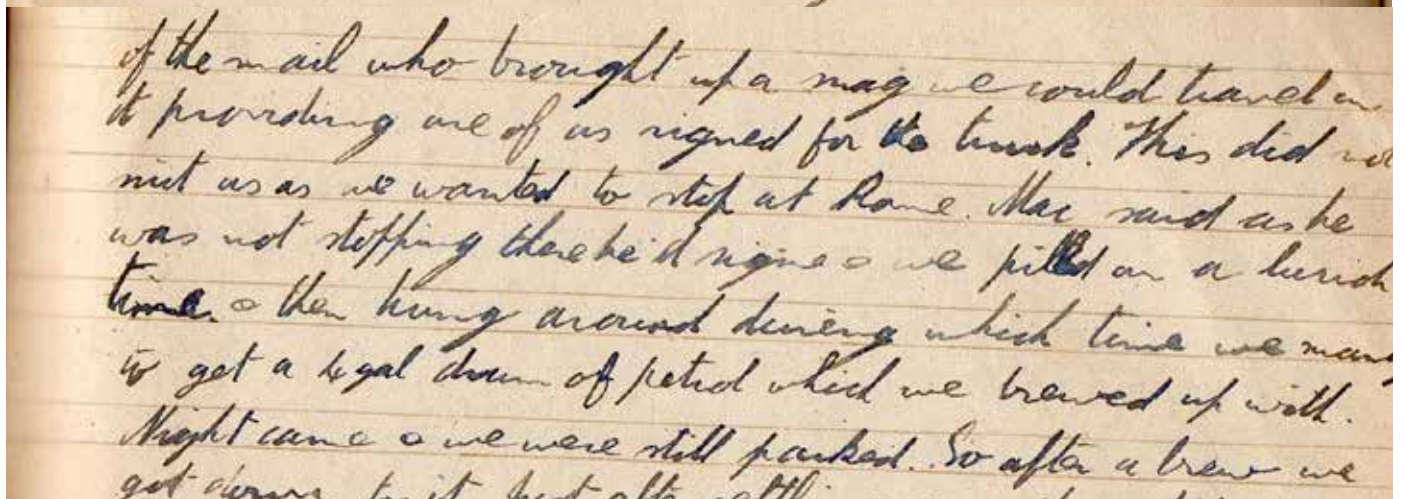 of the mail who brought up a mag we could travel in
it providing one of us signed for the truck. This did not
suit us as we wanted to stop at Rome. Mac said as he
was not stopping there he'd sign & we pilled on a lunch
time. & then hung around during which time we manag
to get a 4 gal drum of petrol which we brewed up with.
Night came & we were still parked. So after a brew we
got down to it but after